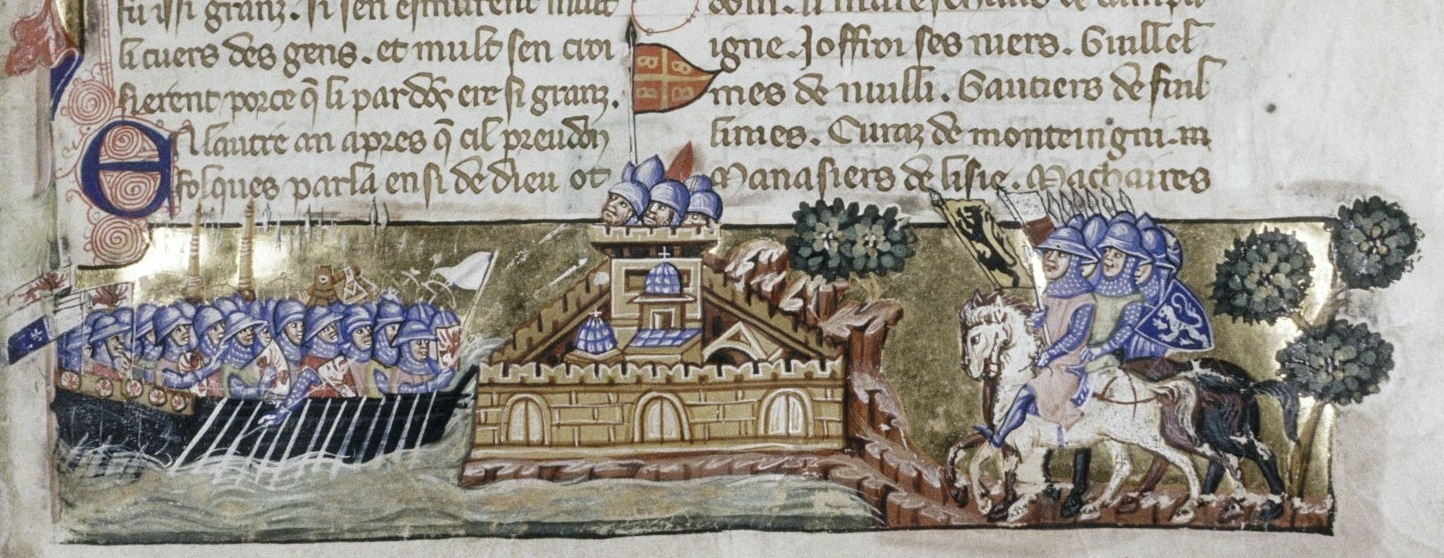 fu issi granz. si sen esmurent mult
li cuers des gens. et mult sen croi
sierent porce q̃ li pardõs ere si granz.
En lautre an apres q̃ cil preudõ
folques parla ensi de dieu ot
dom. li mareschaus de champa
igne. Joffroi ses niers. Guillel
mes de nuilli. Gautiers de fuil
lines. Euraz de monteingni.
Manasiers de lisle. Machaires